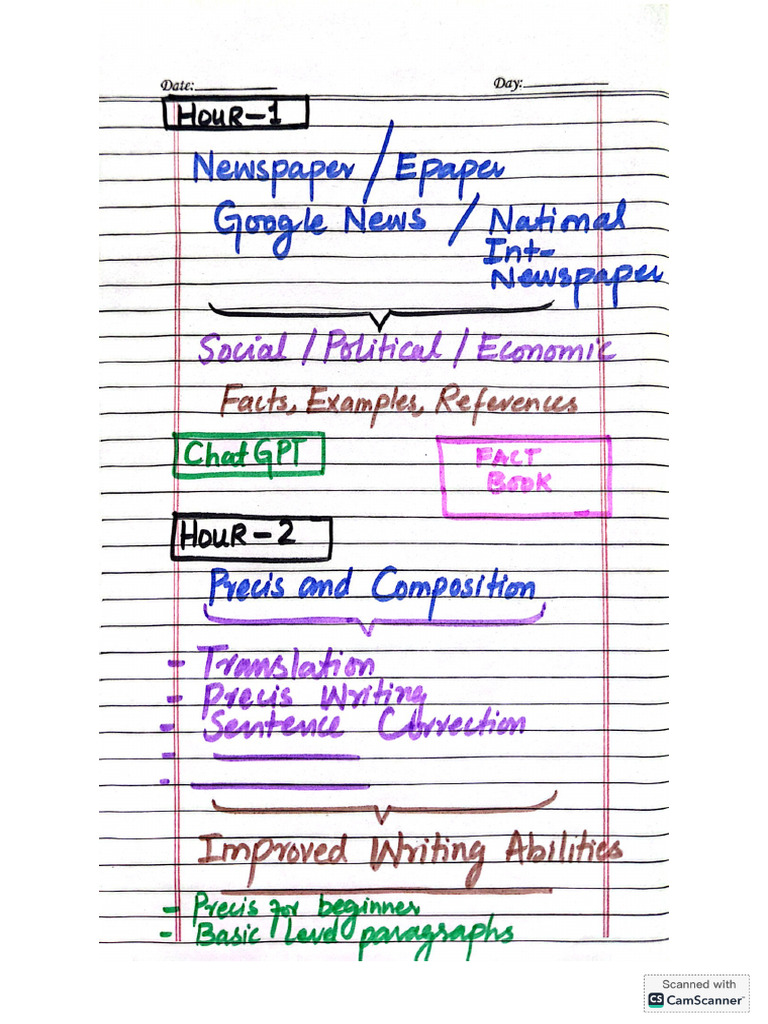 Date:
Day:
HOUR-1
Newspaper / Epaper
Google News / National
Int-
Newspaper
Social / Political / Economic
Facts, Examples, References
ChatGPT
FACT
BOOK
HOUR-2
Precis and Composition
- Translation
- Precis Writing
- Sentence Correction
-
-
Improved Writing Abilities
- Precis for beginner
- Basic level paragraphs
Scanned with
CS CamScanner